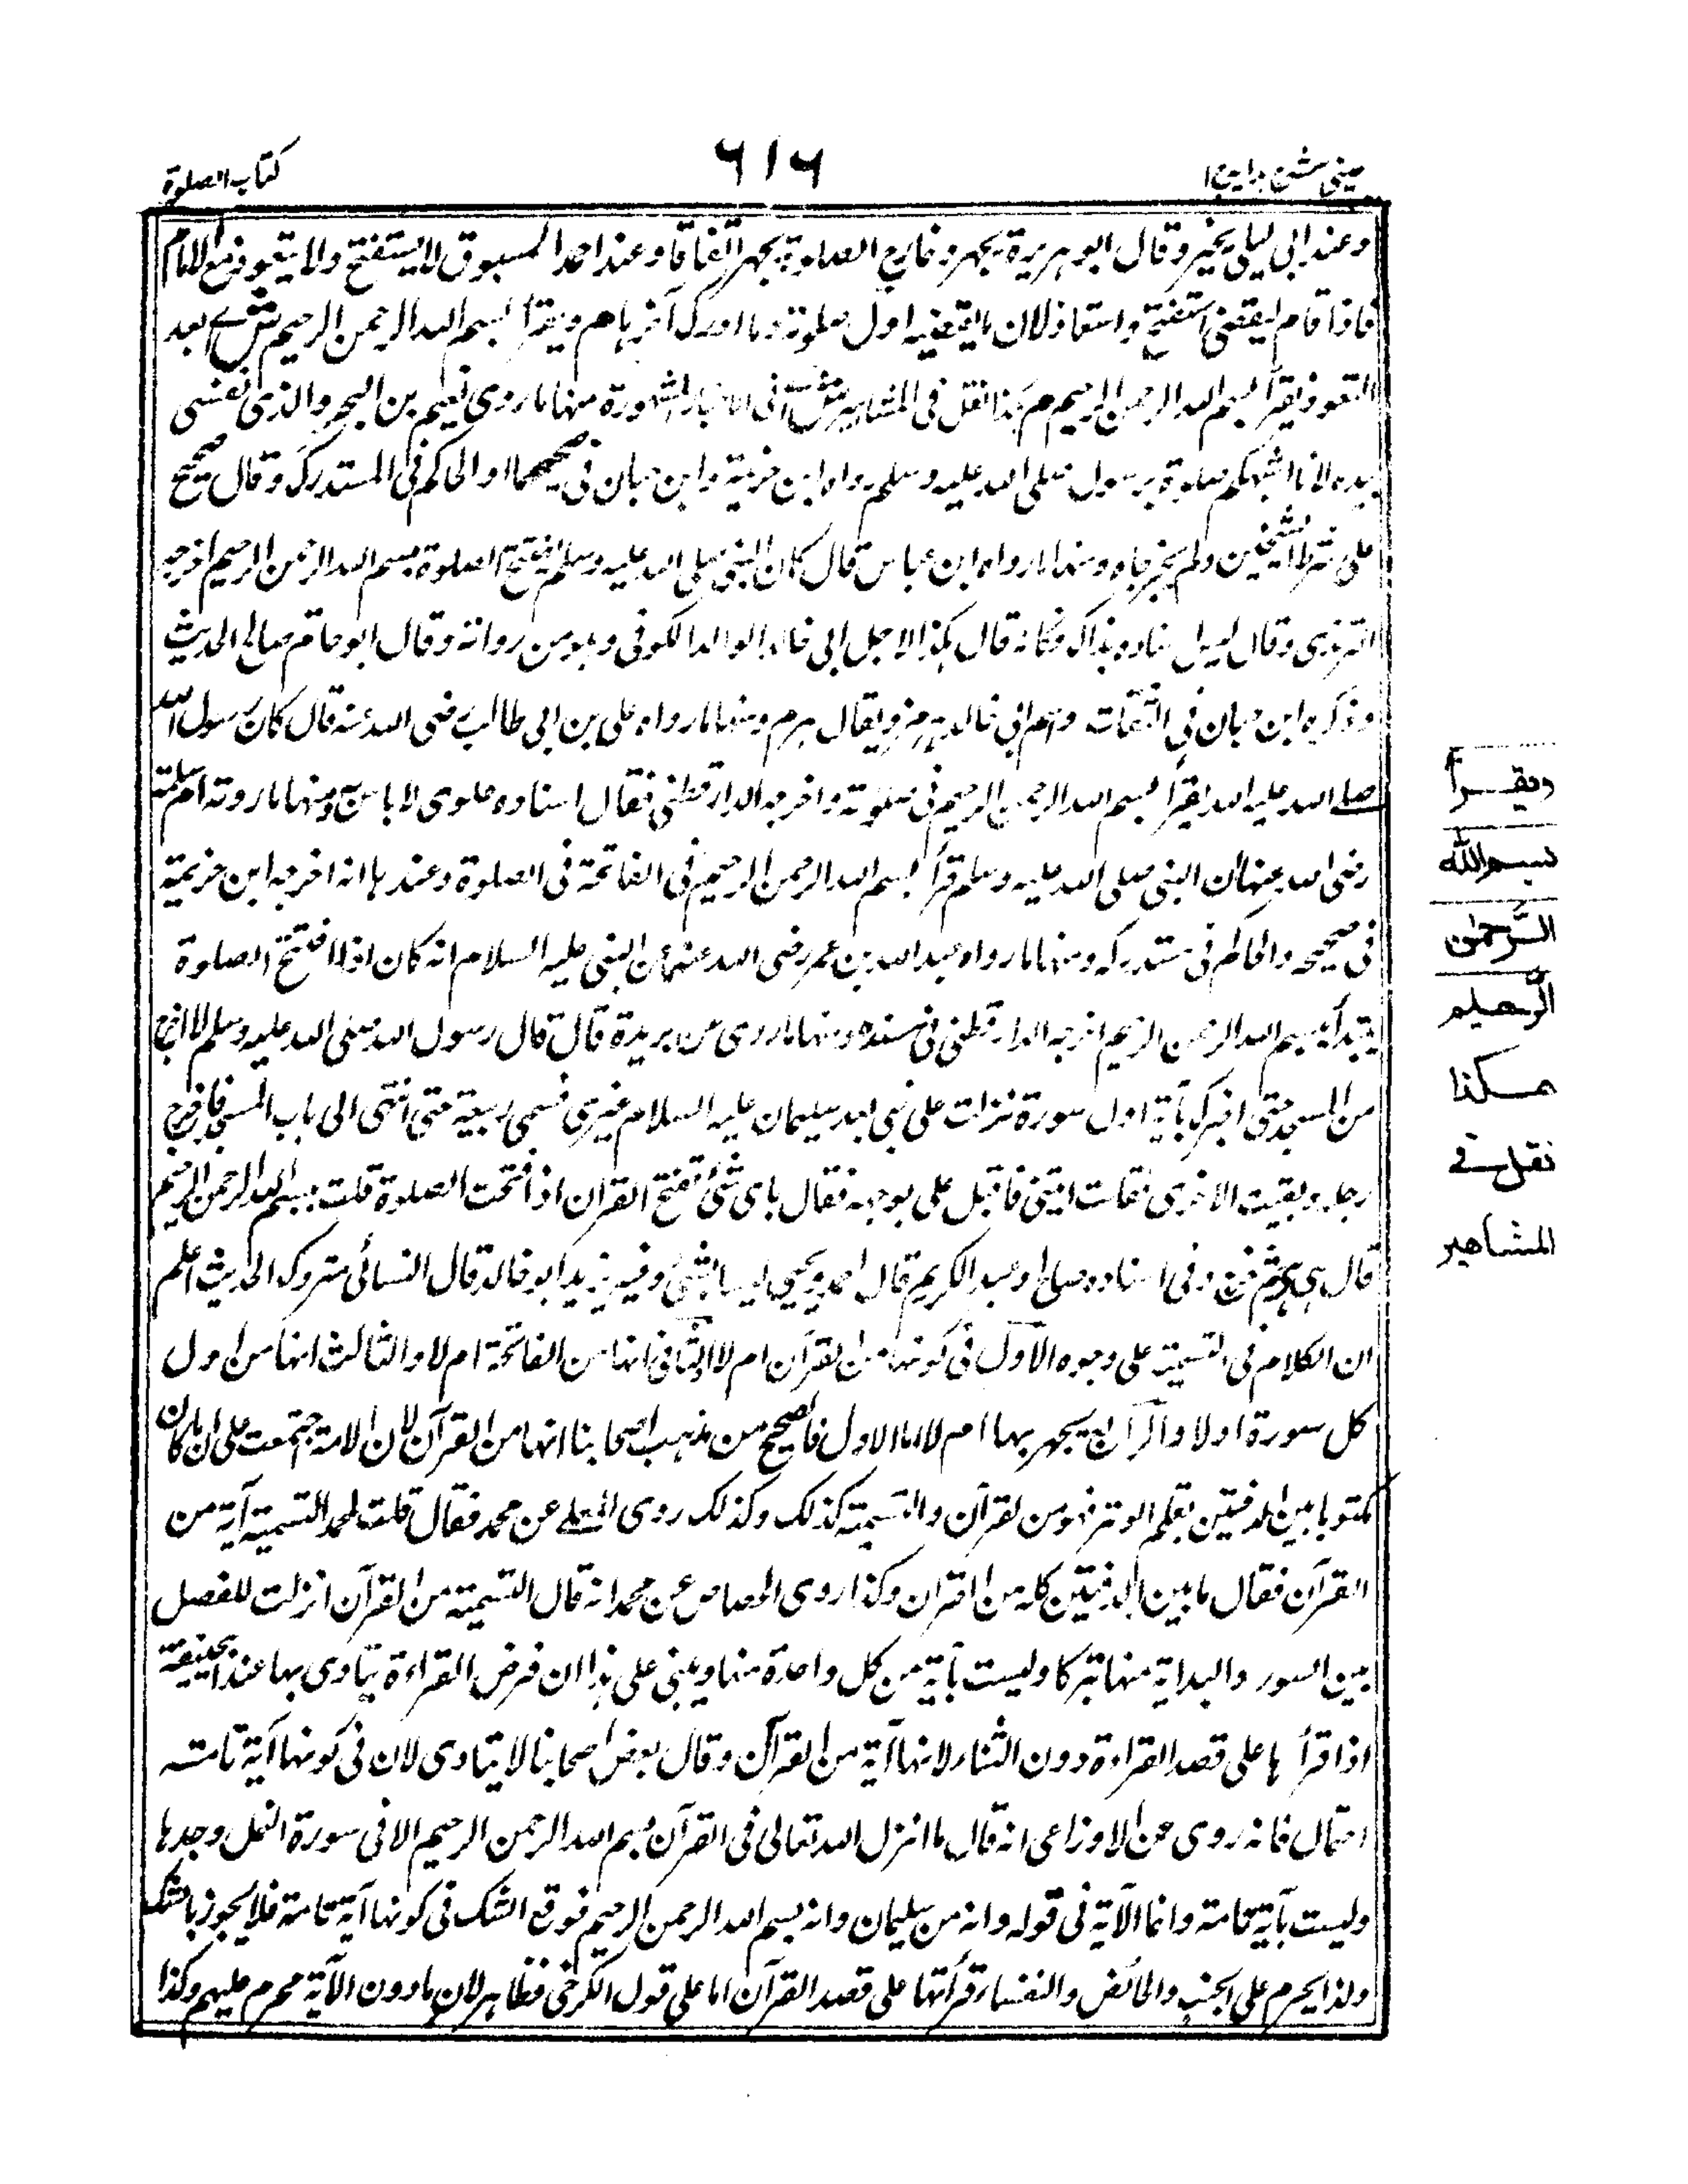 عینی شرح ہدایہ ج ۱
٦١٦
کتاب الصلوة
وعند ابی لیلی یخیر وقال ابو ہریرة یجہر وخارج الصلوة یجہر اتفاقا وعند احمد المسبوق لا یستفتح ولا یتعوذ مع الامام
فاذا قام لیقضی استفتح واستعاذ لان ما یقضیہ اول صلوتہ وما ادرک آخرہا ھم ویقرأ بسم اللہ الرحمن الرحیم ش ای بعد
التعوذ یقرأ بسم اللہ الرحمن الرحیم م ہکذا نقل فی المشاہیر ش ای فی الاخبار المشہورة منہا ما روی نعیم بن المجمر والذی نفسی
بیدہ لانا اشبہکم صلوة برسول صلی اللہ علیہ وسلم رواہ ابن خزیمة وابن حبان فی صحیحہما والحاکم فی المستدرک وقال صحیح
علی شرط الشیخین ولم یخرجاہ ومنہا ما رواہ ابن عباس قال کان النبی صلی اللہ علیہ وسلم یفتتح الصلوة ببسم اللہ الرحمن الرحیم اخرجہ
الترمذی وقال لیس اسنادہ بذاک وکانہ قال ہکذا لاجل ابی خالد الوالد الکوفی وہو من رواتہ وقال ابو حاتم صالح الحدیث
وذکرہ ابن حبان فی الثقات واسم ابی خالد ہرمز ویقال ہرم ومنہا ما رواہ علی بن ابی طالب رضی اللہ عنہ قال کان رسول اللہ
صلے اللہ علیہ اللہ یقرأ بسم اللہ الرحمن الرحیم فی صلوتہ واخرجہ الدارقطنی فقال اسنادہ علوی لا باس بہ ومنہا ما روتہ ام سلمة
رضی اللہ عنہا ان النبی صلی اللہ علیہ وسلم قرأ بسم اللہ الرحمن الرحیم فی الفاتحة فی الصلوة وعندہا انہ اخرجہ ابن خزیمة
فی صحیحہ والحاکم فی مستدرکہ ومنہا ما رواہ عبد اللہ بن عمر رضی اللہ عنہما عن النبی علیہ السلام انہ کان اذا افتتح الصلوة
یبتدأ ببسم اللہ الرحمن الرحیم اخرجہ الدارقطنی فی سندہ ومنہا ما روی عن بریدة قال قال رسول اللہ صلی اللہ علیہ وسلم لا اخرج
من المسجد حتی اخبرک بآیة اول سورة نزلت علی نبی بعد سلیمان علیہ السلام غیری فمشی تبعتہ حتی انتہی الی باب المسجد فاخرج
رجلہ وبقیت الاخری فقلت انسی فاقبل علی بوجہہ فقال بای شئ تفتح القران اذا افتتحت الصلوة قلت ببسم اللہ الرحمن الرحیم
قال ہی ہی ثم خرج وفی اسنادہ صالح وعبد الکریم قال احمد ویحیی لیسا بشئ وفیہ یزید ابو خالد قال النسائی متروک الحدیث اعلم
ان الکلام فی التسمیة علی وجوہ الاول فی کونہا من القرآن ام لا والثانی انہا من الفاتحة ام لا والثالث انہا من اول
کل سورة او لا والرابع یجہر بہا ام لا اما الاول فالصحیح من مذہب اصحابنا انہا من القرآن لان الامة اجتمعت علی ان ما کان
مکتوبا بین الدفتین بقلم الوتر فہو من القرآن والتسمیة کذلک وکذلک روی المعلے عن محمد فقال قلت لمحمد التسمیة آیة من
القرآن فقال ما بین الدفتین کلہ من القران وکذا روی الجصاص عن محمد انہ قال التسمیة من القرآن انزلت للفصل
بین السور والبدایة منہا تبرکا ولیست بآیة من کل واحدة منہا ویبنی علی ہذا ان فرض القراءة یتادی بہا عند ابی حنیفة
اذا قرأ ہا علی قصد القراءة دون الثناء لانہا آیة من القرآن وقال بعض اصحابنا لا یتادی لان فی کونہا آیة تامتہ
احتمال فانہ روی عن الاوزاعی انہ قال ما انزل اللہ تعالی فی القرآن بسم اللہ الرحمن الرحیم الا فی سورة النمل وحدہا
ولیست بآیة تامتہ وانما الآیة فی قولہ وانہ من سلیمان وانہ بسم اللہ الرحمن الرحیم فوقع الشک فی کونہا آیة تامتہ فلا یجوز بالشک
ولذا یحرم علی الجنب والحائض والنفساء قرأتہا علی قصد القرآن اما علی قول الکرخی فظاہر لان ما دون الآیة محرم علیہم وکذا
ویقرأ
بسم اللہ
الرَّحمٰن
الرَّحیلم
ھکذا
نقل فے
المشاھیر